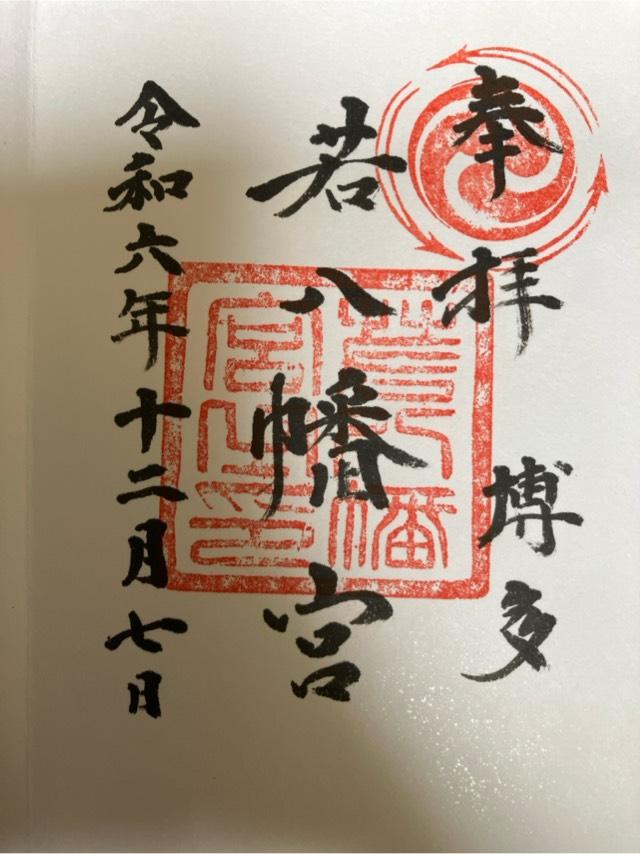 奉拝 博多
若八幡宮
令和六年十二月七日
若八幡
宮之印